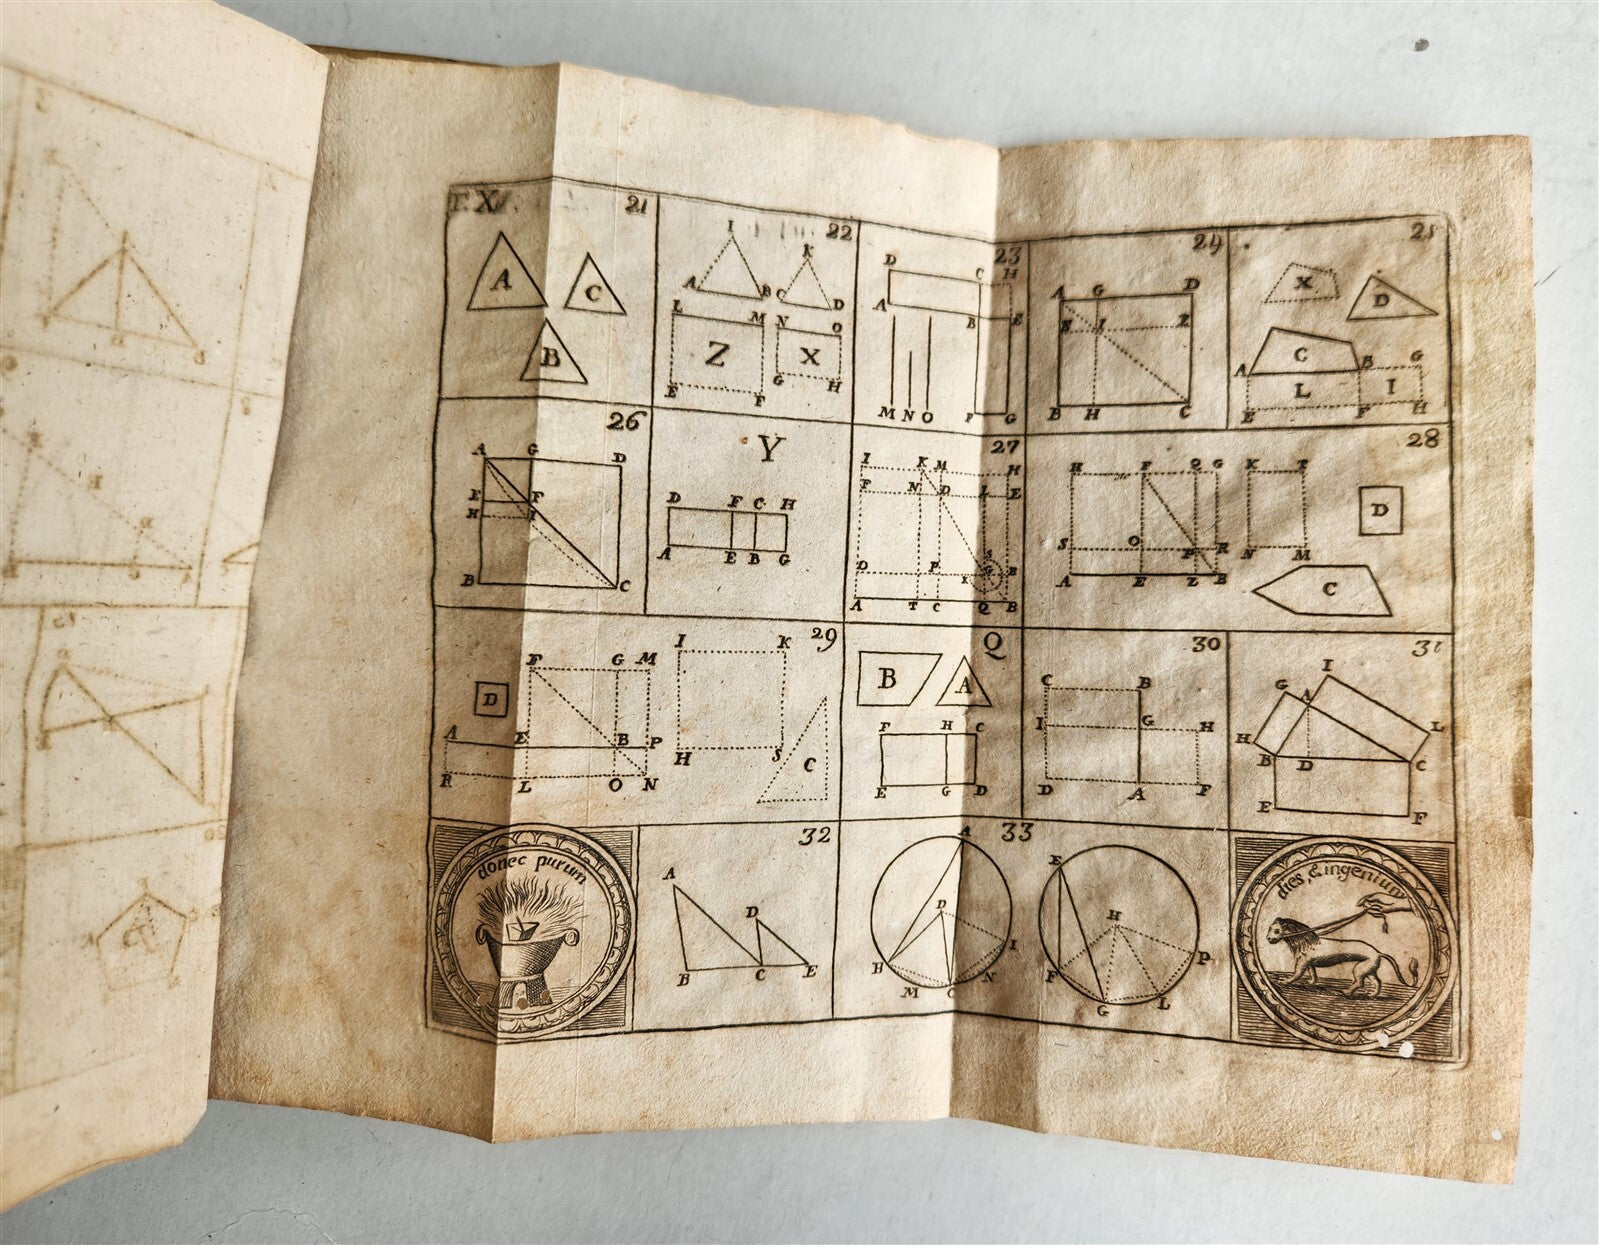 21
A
C
B
22
I
K
A B C D
L M N O
Z X
E F G H
23
D C H
A B E
M N O F G
24
A G D
E I F
B H C
25
X D
C
A B G
L I
E F H
26
A G D
E F
H I
B C
Y
D F C H
A E B G
27
I K M H
F N D L E
S
O P G R
A T C Q B
28
H F Q G K T
D
S O P R N M
A E Z B
C
29
I K
F G M
D
A E B P
H S C
R L O N
Q
B A
F H C
E G D
30
C B
I G H
D A F
31
I
G A
L
H B D C
E F
donec purum
32
A
D
B C E
33
A
D
I
H N
M C
E
H
F P
G L
dies, & ingenium